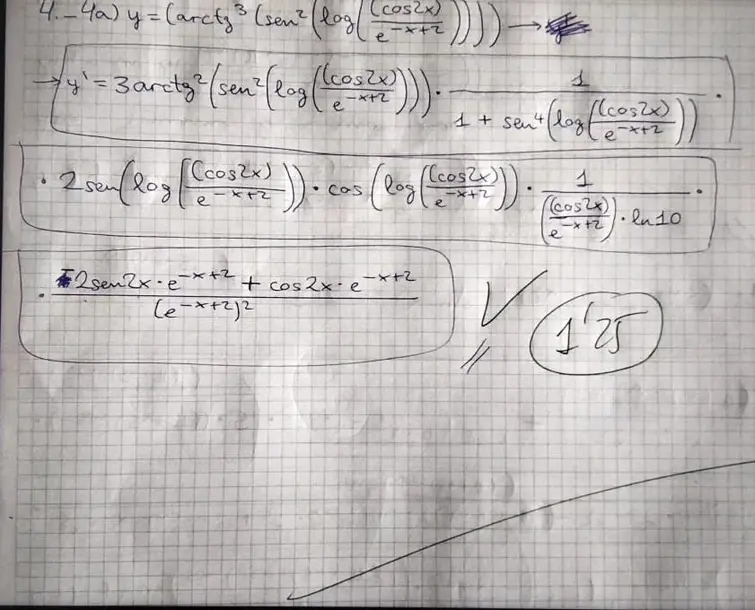 4.-4a) y = (arctg³ (sen² (log((cos2x)/e^(-x+2))))) →
→ y' = 3arctg² (sen² (log((cos2x)/e^(-x+2)))) · 1/(1 + sen⁴ (log((cos2x)/e^(-x+2)))) ·
· 2sen(log((cos2x)/e^(-x+2))) · cos (log((cos2x)/e^(-x+2))) · 1/(((cos2x)/e^(-x+2)) · ln10) ·
· (-2sen2x · e^(-x+2) + cos2x · e^(-x+2))/(e^(-x+2))²
1'25